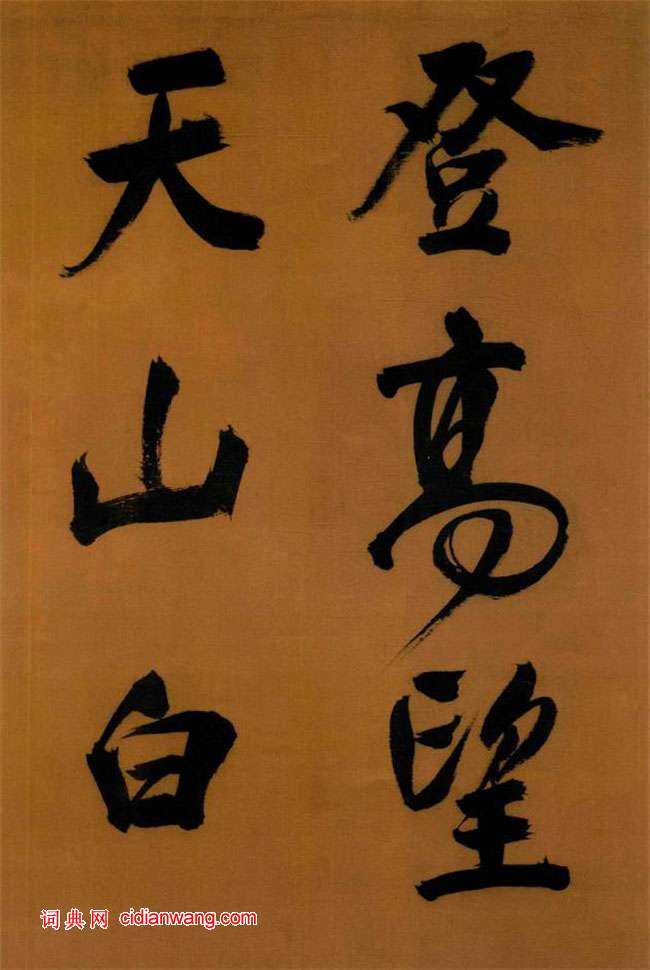 登高望
天山白
词典网 cidianwang.com